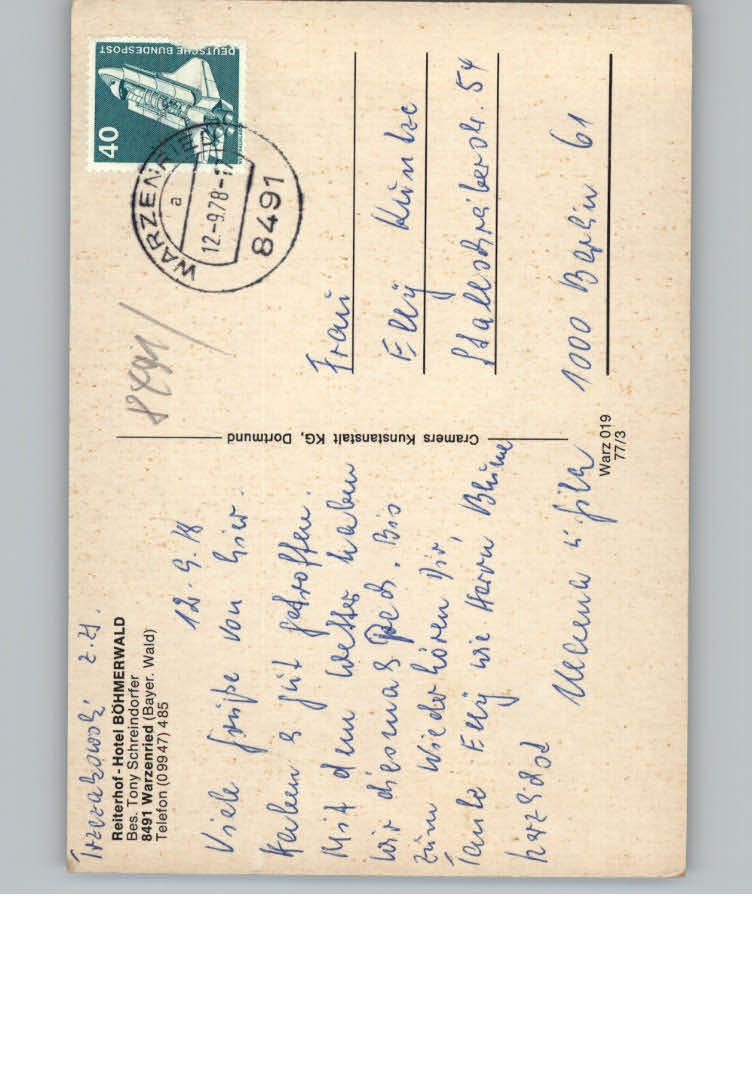 Trzezakowski z.Zt.
Reiterhof - Hotel BÖHMERWALD
Bes. Tony Schreindorfer
8491 Warzenried (Bayer. Wald)
Telefon (09947) 485
12.9.78
Viele Grüße von hier.
Haben's gut getroffen.
Mit dem Wetter haben
wir diesmal Pech. Bis
zum Wiederhören Dir,
Tante Elly wie Herrn Blume
herzlichst
Cramers Kunstanstalt KG, Dortmund
Warz 019
77/3
8491
DEUTSCHE BUNDESPOST
40
WARZENRIED
a
12.-9.78-
8491
Frau
Elly Kuntze
Stallschreiberstr. 54
1000 Berlin 61